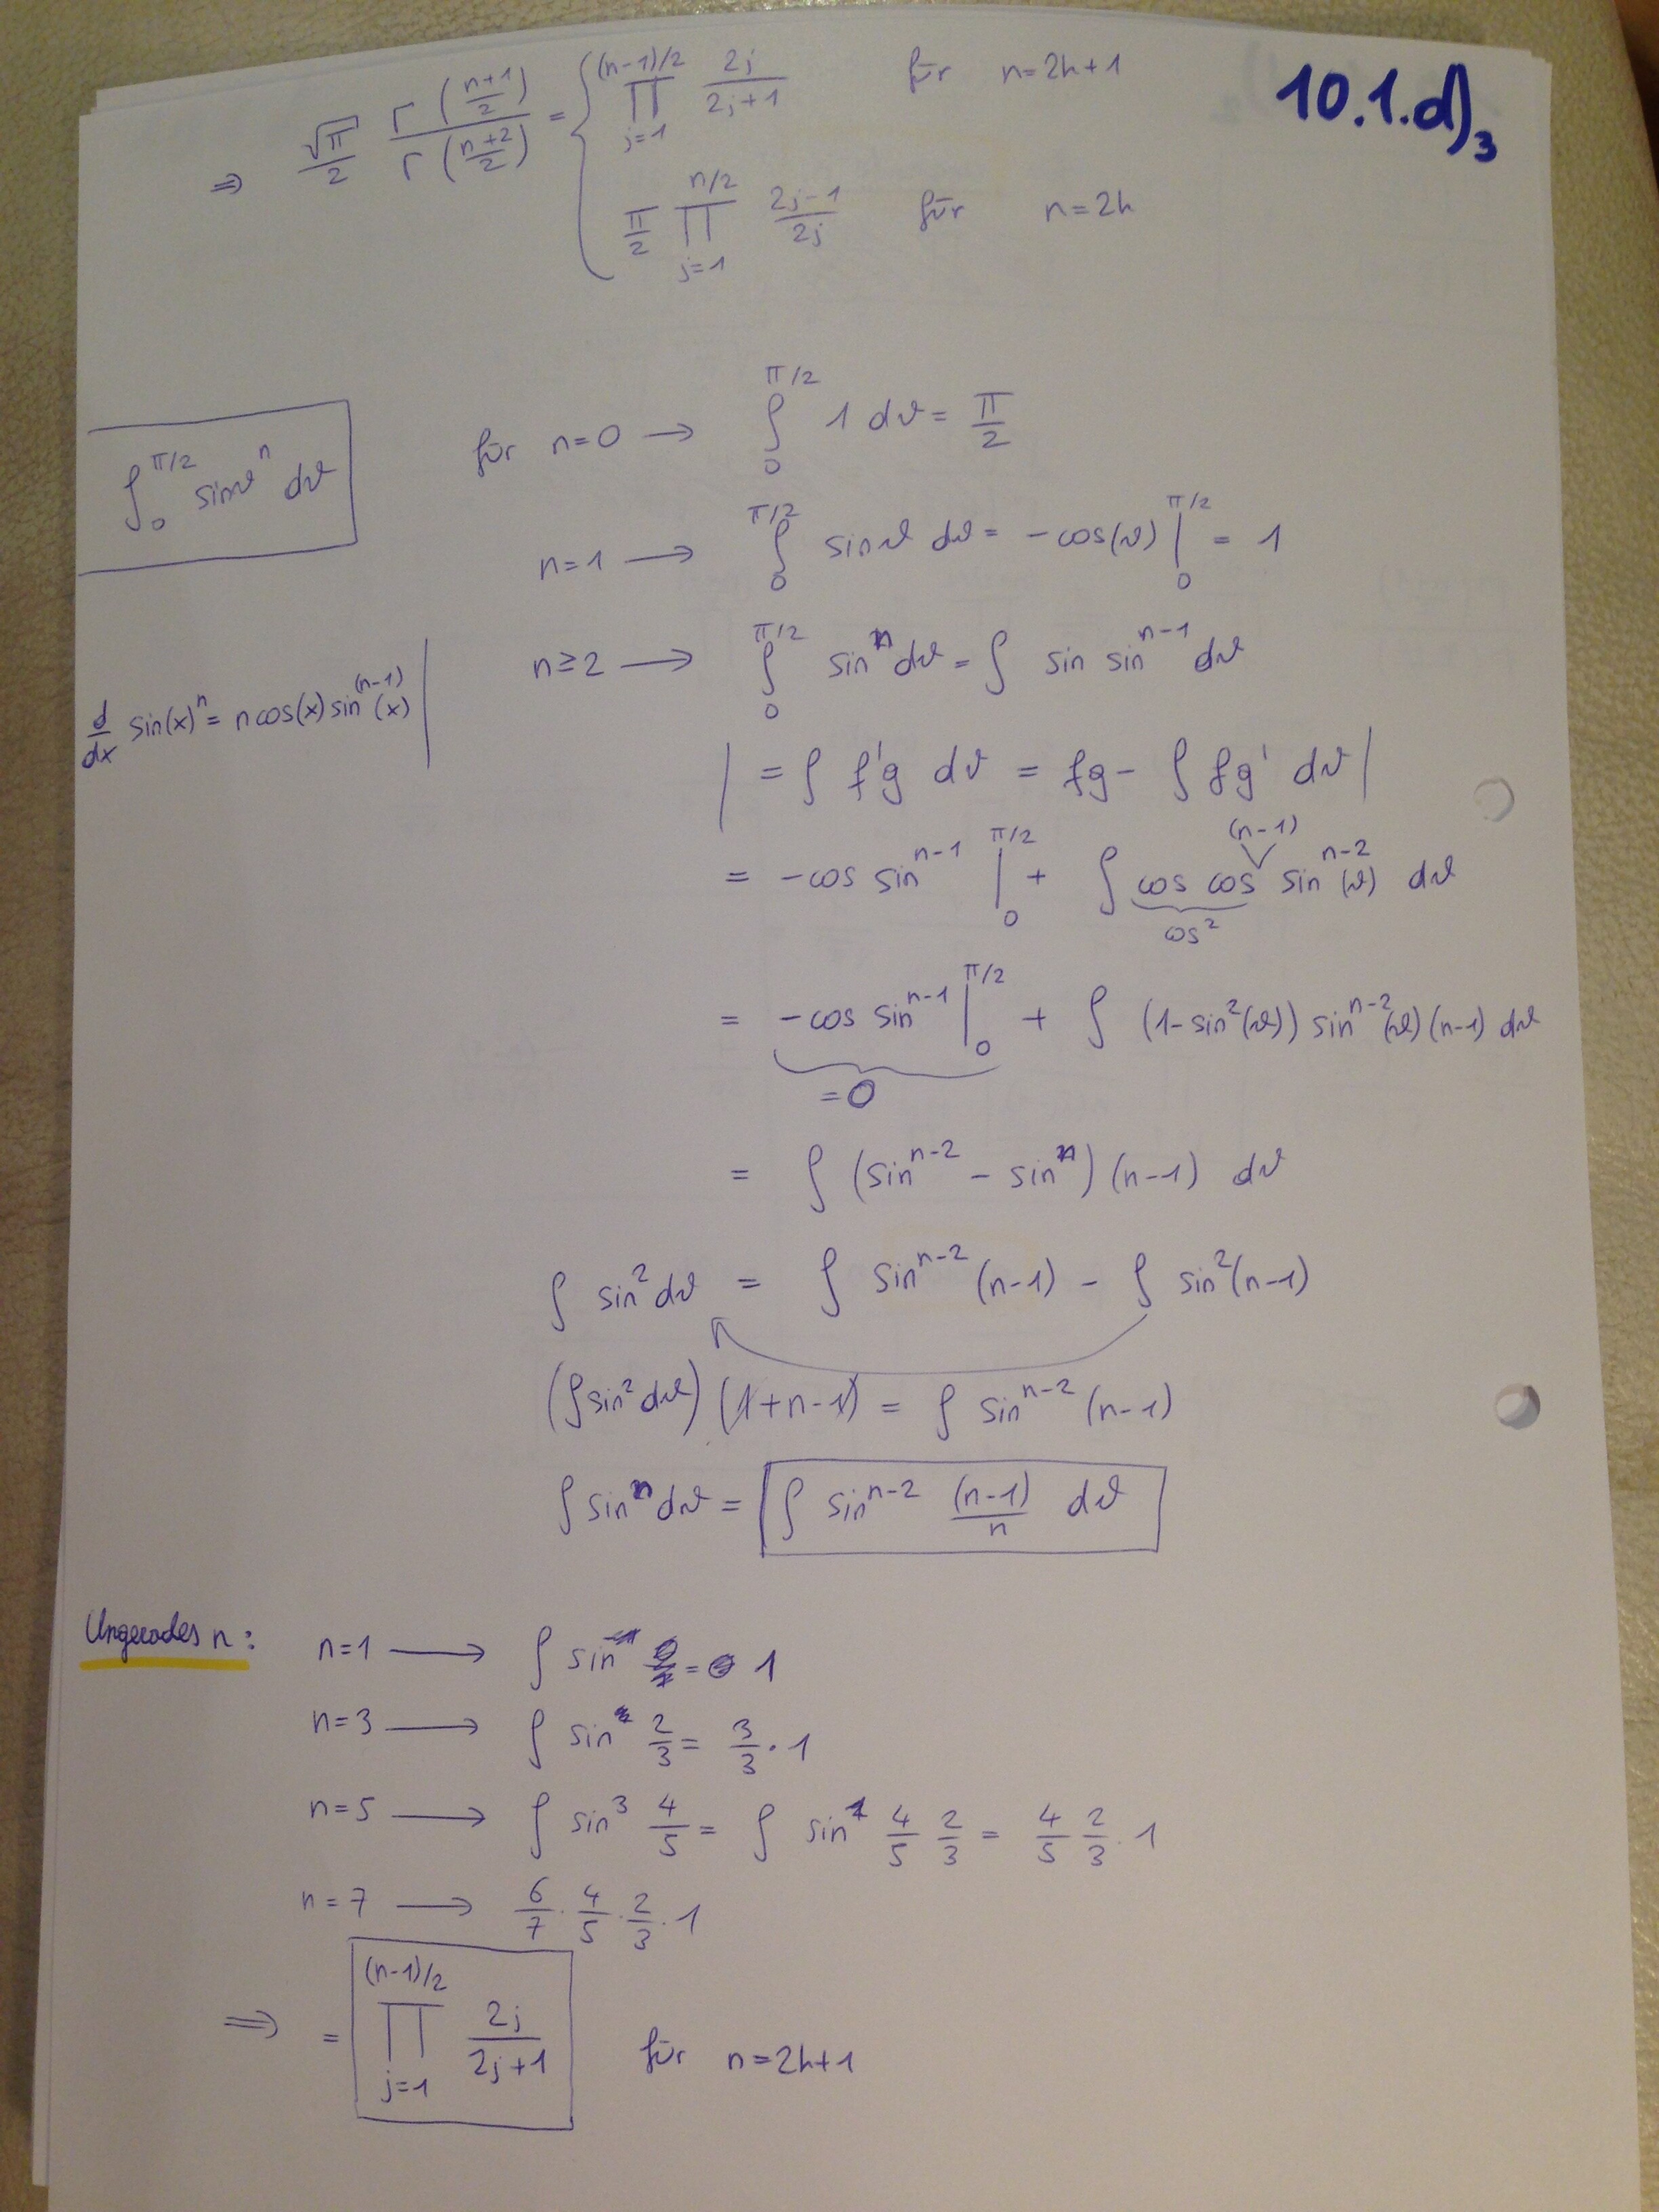 10.1.d)₃
⇒ √π/2 Γ((n+1)/2)/Γ((n+2)/2) = { ∏_{j=1}^{(n-1)/2} 2j/(2j+1) für n=2k+1
π/2 ∏_{j=1}^{n/2} (2j-1)/2j für n=2k
∫_0^{π/2} sinϑ^n dϑ
für n=0 → ∫_0^{π/2} 1 dϑ = π/2
n=1 → ∫_0^{π/2} sinϑ dϑ = -cos(ϑ) |_0^{π/2} = 1
n≥2 → ∫_0^{π/2} sin^n dϑ = ∫ sin sin^{n-1} dϑ
d/dx sin(x)^n = n cos(x) sin^{(n-1)}(x) |
| = ∫ f'g dϑ = fg - ∫ fg' dϑ |
= -cos sin^{n-1} |_0^{π/2} + ∫ cos cos (n-1) sin^{n-2}(ϑ) dϑ
cos²
= -cos sin^{n-1} |_0^{π/2} + ∫ (1-sin²(ϑ)) sin^{n-2}(ϑ) (n-1) dϑ
=0
= ∫ (sin^{n-2} - sin^n) (n-1) dϑ
∫ sin² dϑ = ∫ sin^{n-2} (n-1) - ∫ sin² (n-1)
(∫ sin² dϑ) (1+n-1) = ∫ sin^{n-2} (n-1)
∫ sin^n dϑ = ∫ sin^{n-2} (n-1)/n dϑ
Ungerades n:
n=1 → ∫ sin = 1
n=3 → ∫ sin 2/3 = 3/3 · 1
n=5 → ∫ sin³ 4/5 = ∫ sin¹ 4/5 2/3 = 4/5 2/3 · 1
n=7 → 6/7 · 4/5 · 2/3 · 1
⇒ = ∏_{j=1}^{(n-1)/2} 2j/(2j+1) für n=2k+1